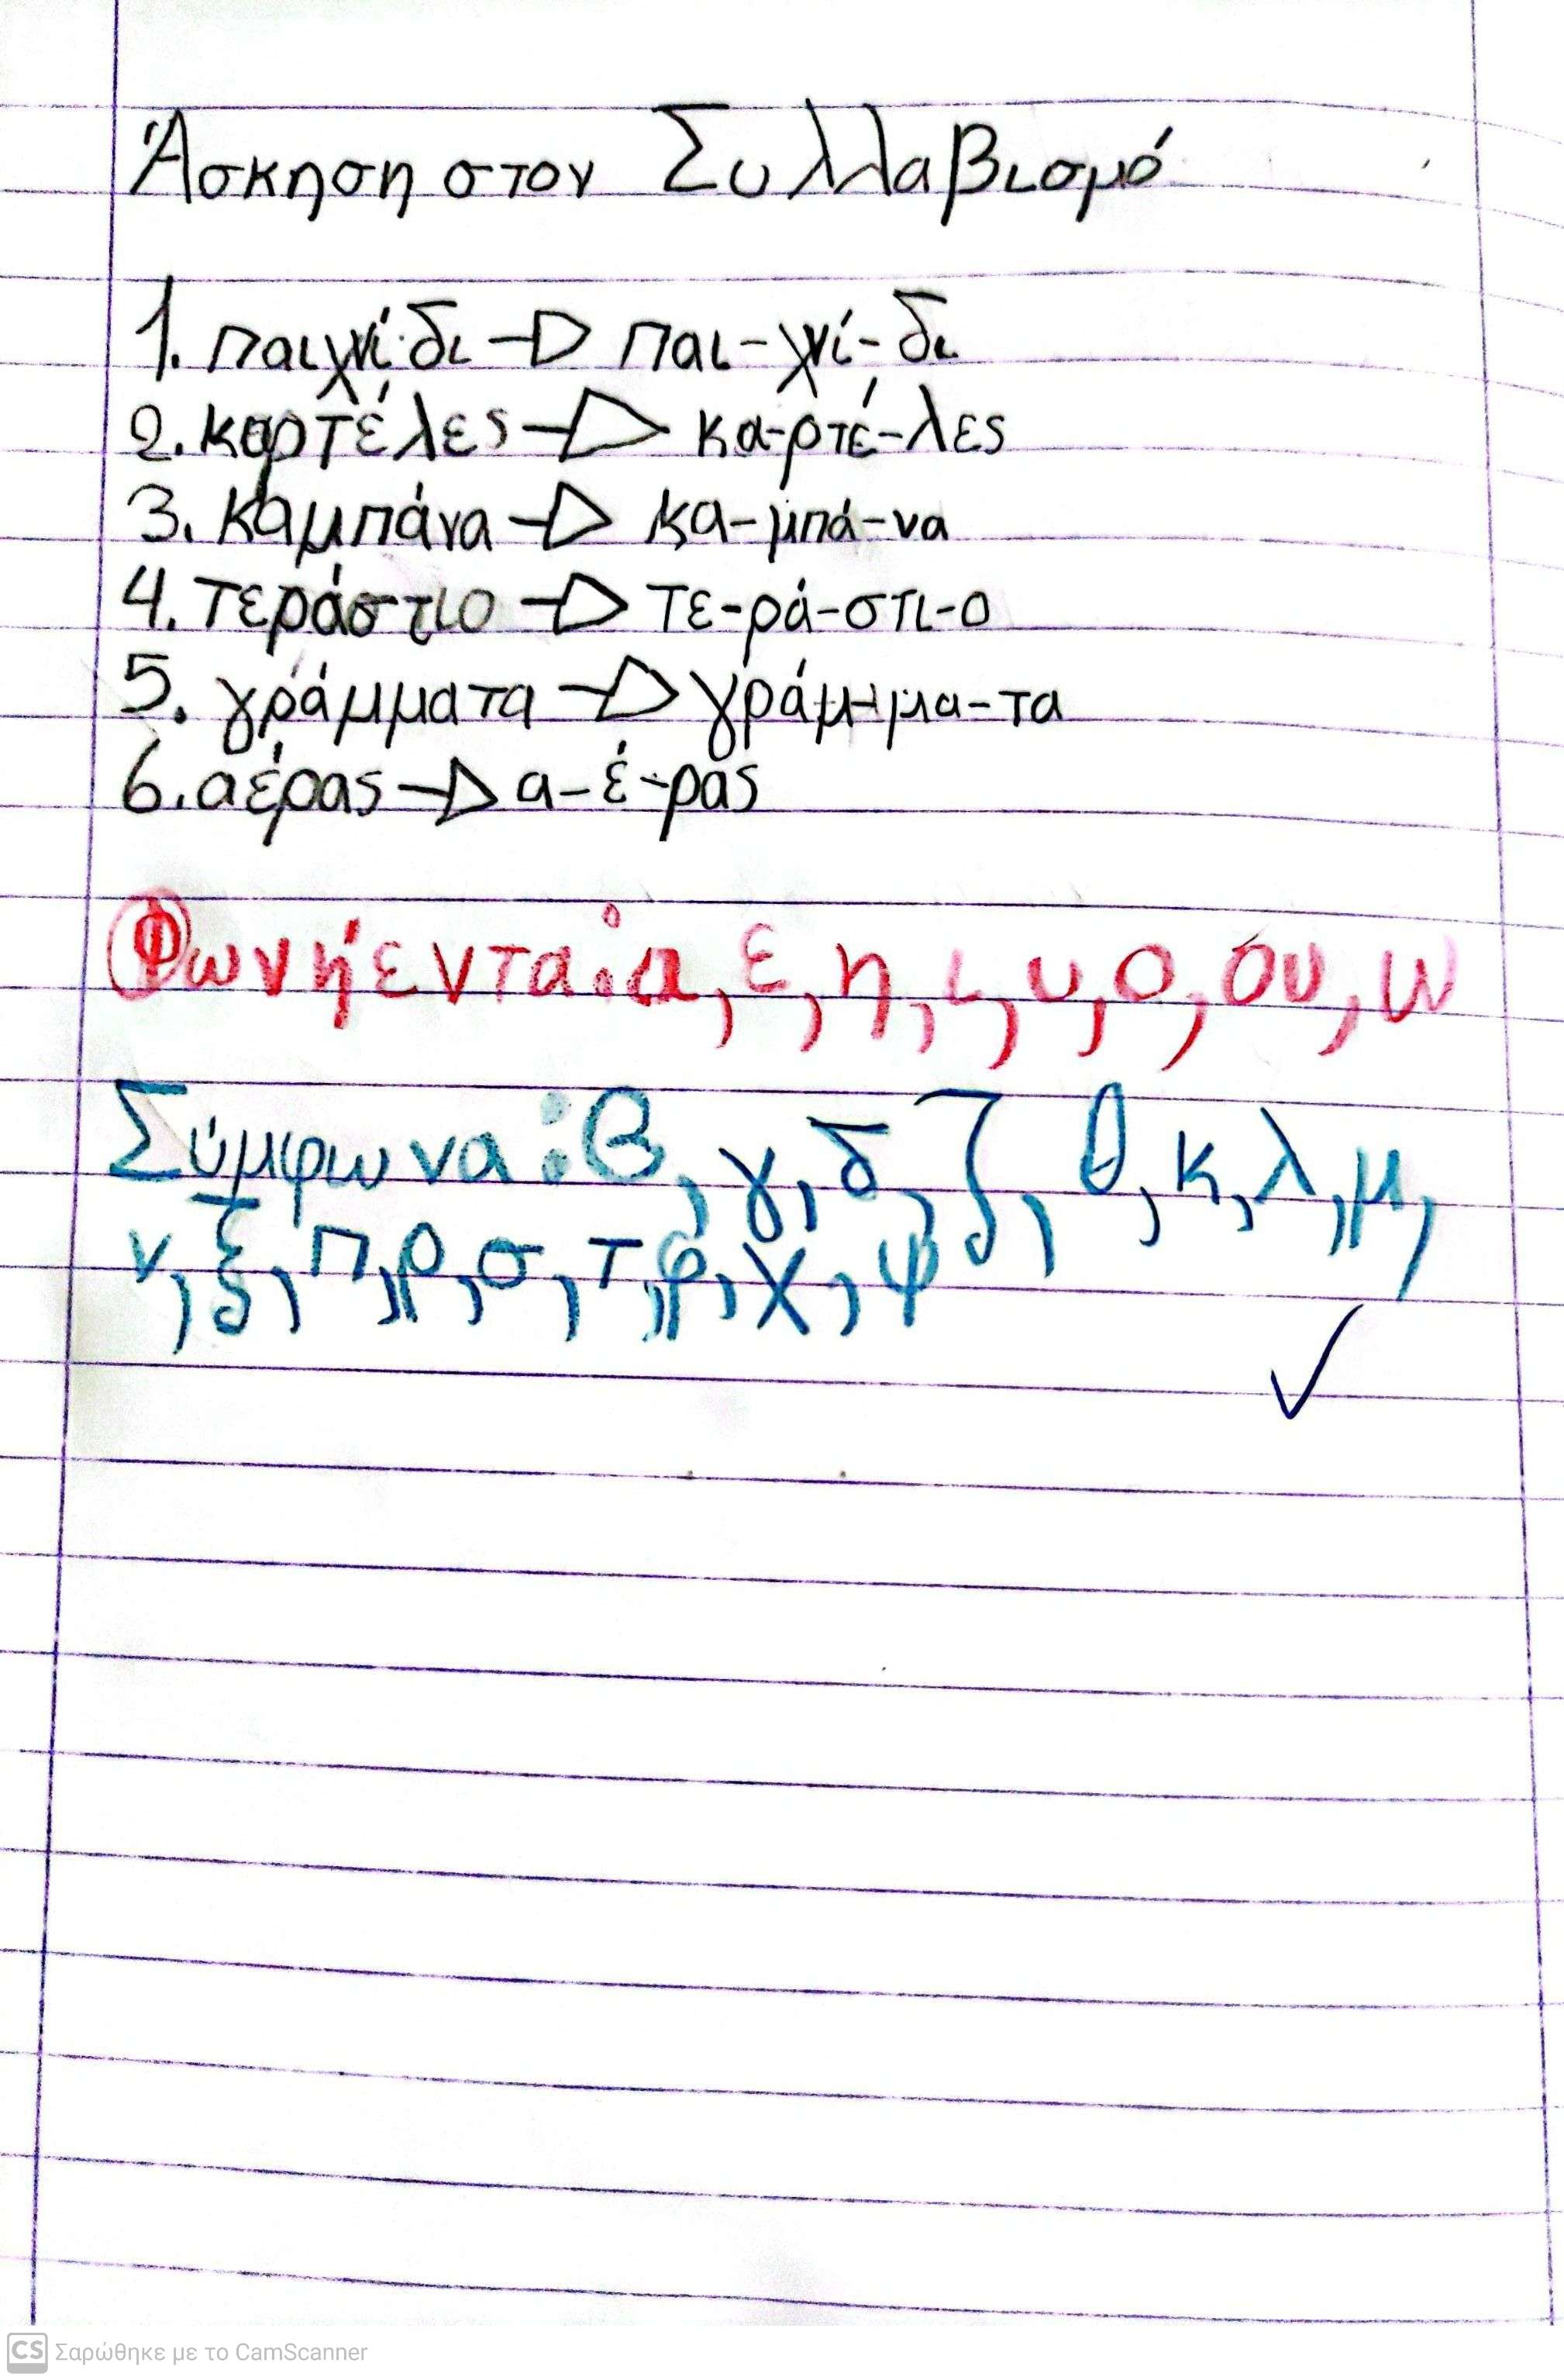 Άσκηση στον Συλλαβισμό
1. παιχνίδι → παι-χνί-δι
2. καρτέλες → κα-ρτέ-λες
3. καμπάνα → κα-μπά-να
4. τεράστιο → τε-ρά-στι-ο
5. γράμματα → γράμ-μα-τα
6. αέρας → α-έ-ρας
Φωνήεντα: α, ε, η, ι, υ, ο, ου, ω
Σύμφωνα: β, γ, δ, ζ, θ, κ, λ, μ,
ν, ξ, π, ρ, σ, τ, φ, χ, ψ
CS Σαρώθηκε με το CamScanner